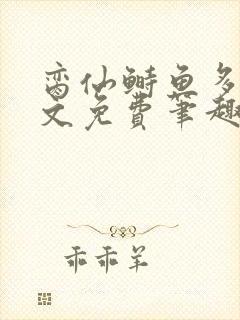 鸾仙鲥鱼多
文免费笔趣
乖乖羊